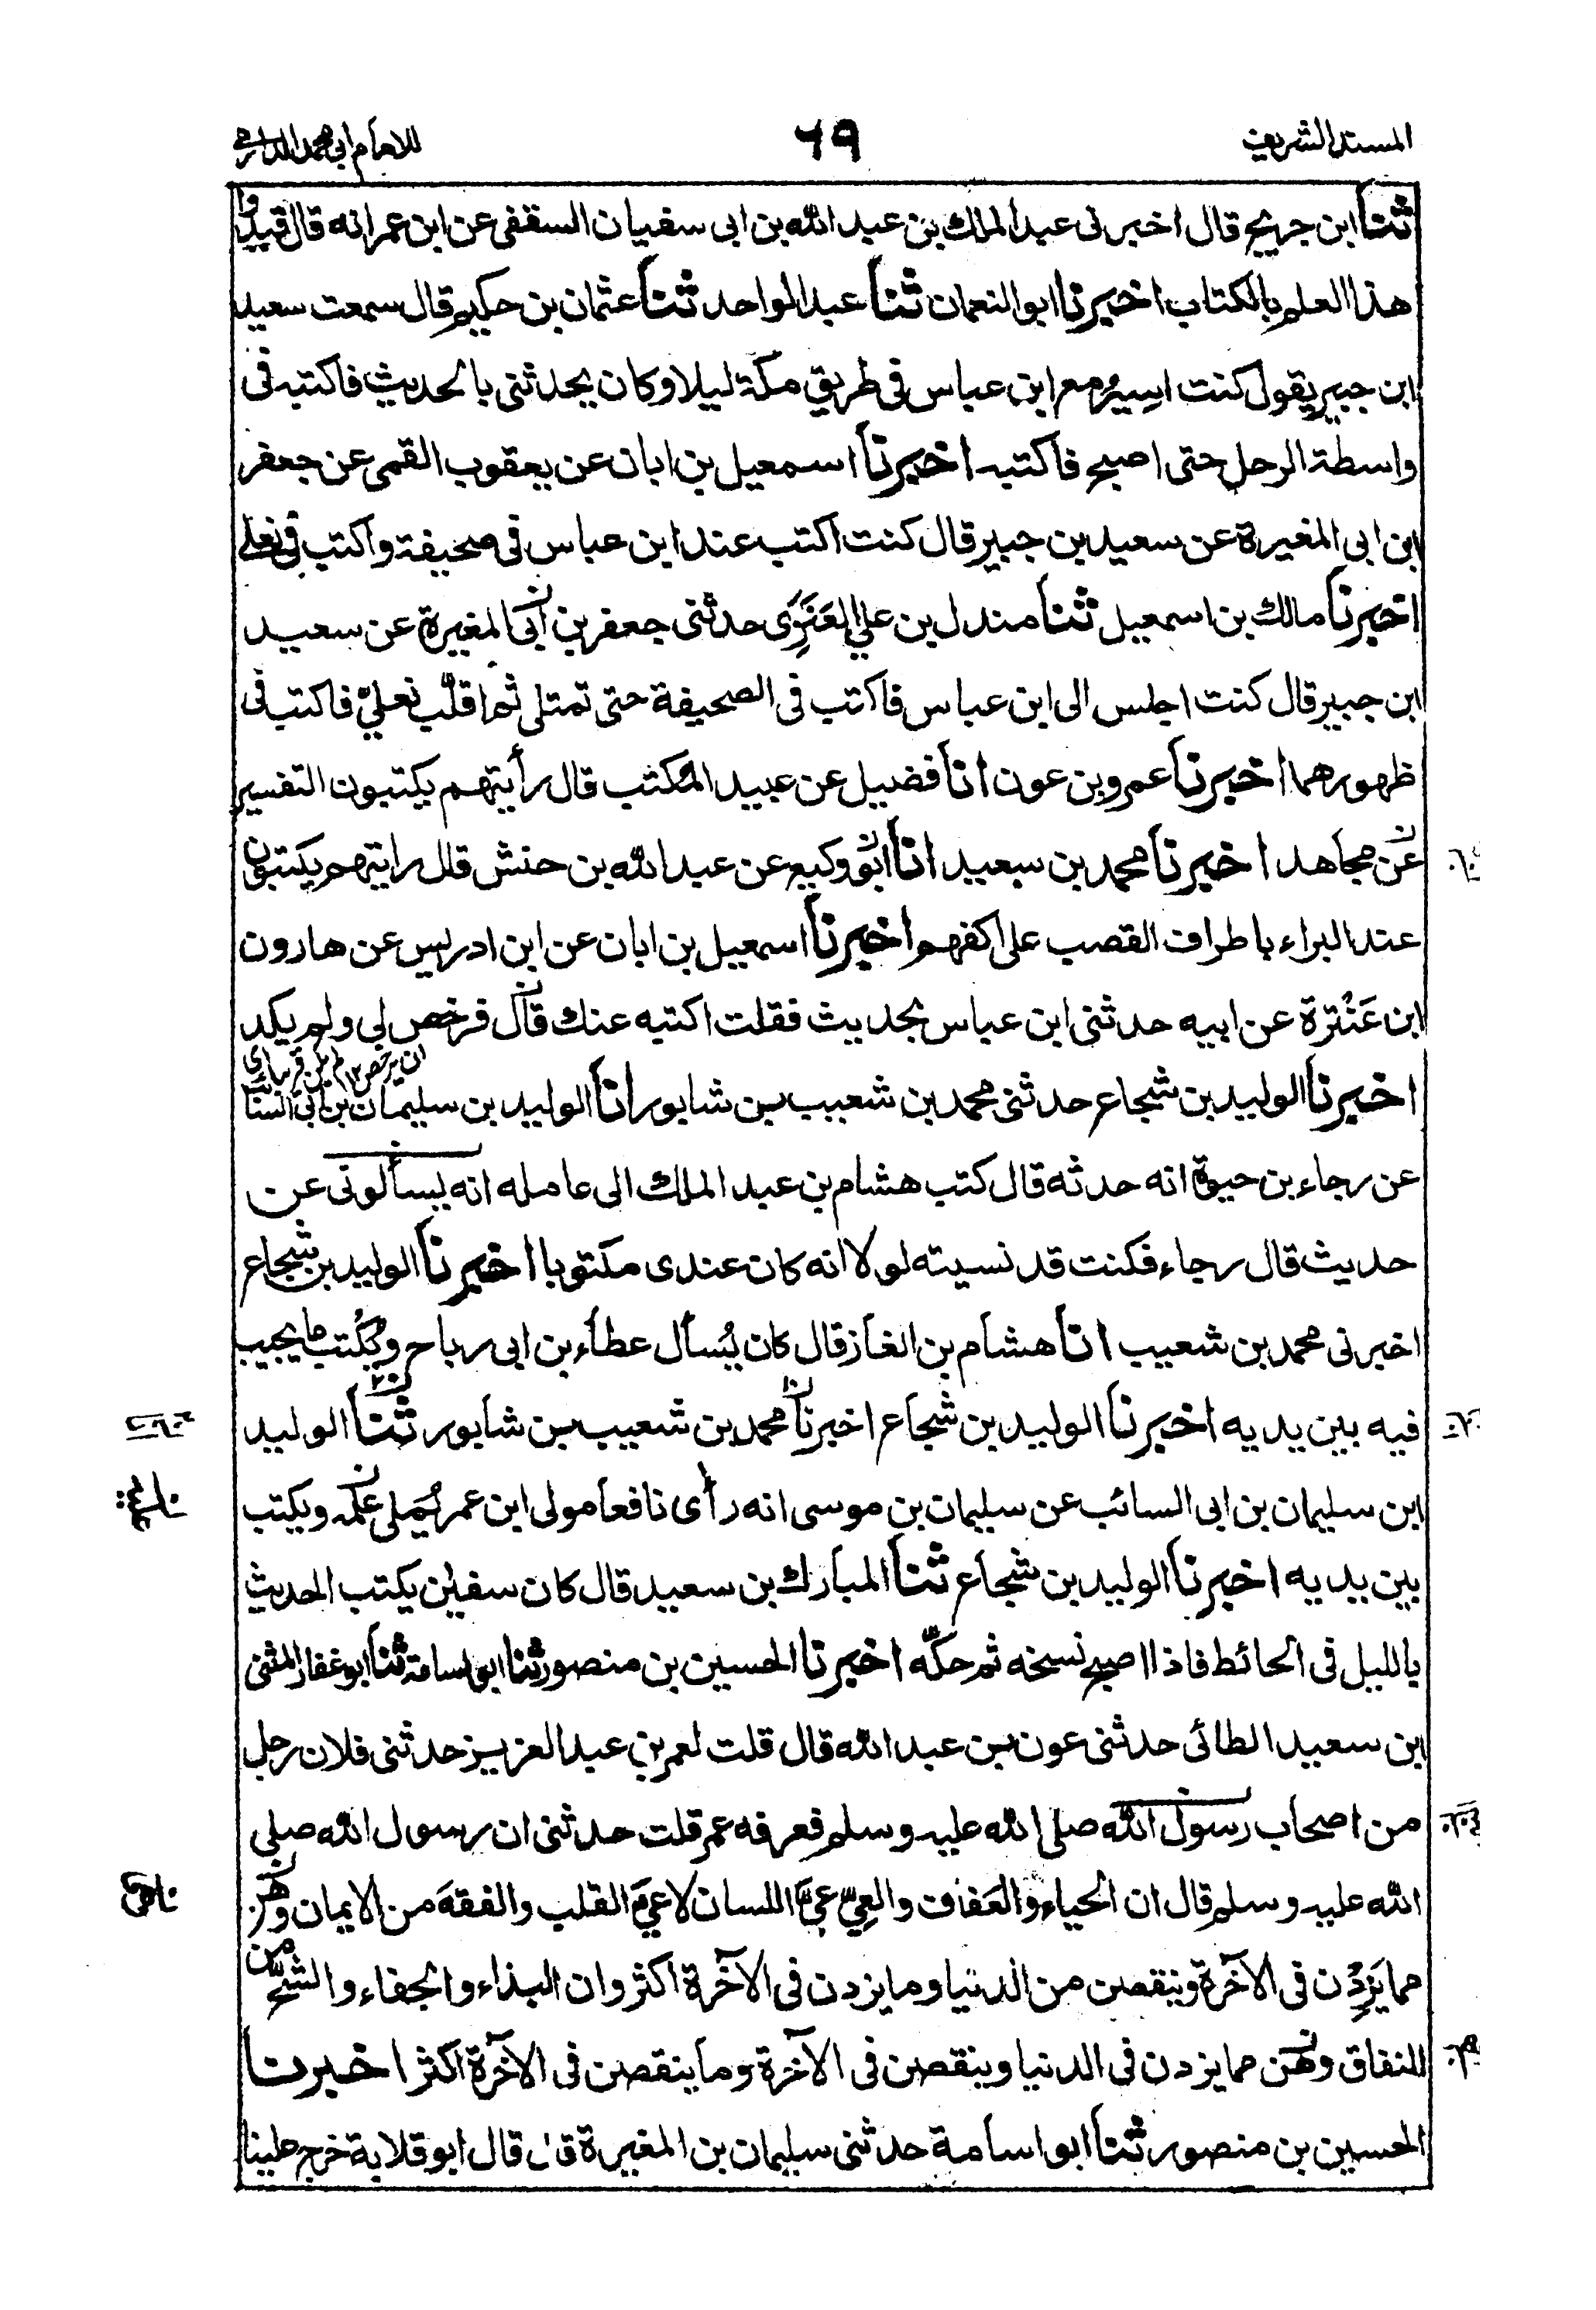 المسند الشريف ٦٩ للامام ابى محمد الدارمى
ثنا ابن جريج قال اخبرنى عبد الملك بن عبد الله بن ابى سفيان السقفى عن ابن عمر انه قال قيدوا
هذا العلم بالكتاب اخبرنا ابو النعمان ثنا عبد الواحد ثنا عثمان بن حكيم قال سمعت سعيد
ابن جبير يقول كنت اسير مع ابن عباس فى طريق مكة ليلا وكان يحدثنى بالحديث فاكتبه فى
واسطة الرحل حتى اصبح فاكتبه اخبرنا اسمعيل بن ابان عن يعقوب القمى عن جعفر
ابن ابى المغيرة عن سعيد بن جبير قال كنت اكتب عند ابن عباس فى صحيفة واكتب فى نعلى
اخبرنا مالك بن اسمعيل ثنا مندل بن على العَنَزِى حدثنى جعفر بن ابى المغيرة عن سعيد
ابن جبير قال كنت اجلس الى ابن عباس فاكتب فى الصحيفة حتى تمتلى ثم اقلّب نعلىّ فاكتب فى
ظهورهما اخبرنا عمرو بن عون انا فضيل عن عبيد المكتب قال رأيتهم يكتبون التفسير
عن مجاهد اخبرنا محمد بن سعيد انا ابو وكيع عن عبد الله بن حنش قال رايتهم يكتبون
عند البراء باطراف القصب على اكفهم اخبرنا اسمعيل بن ابان عن ابن ادريس عن هارون
ابن عَنْترة عن ابيه حدثنى ابن عباس بحديث فقلت اكتبه عنك قال فرخص لى ولم يكد
اخبرنا الوليد بن شجاع حدثنى محمد بن شعيب بن شابور انا الوليد بن سليمان بن ابى السائب
عن رجاء بن حيوة انه حدثه قال كتب هشام بن عبد الملك الى عامله انه يسألونى عن
حديث قال رجاء فكنت قد نسيته لولا انه كان عندى مكتوبا اخبرنا الوليد بن شجاع
اخبرنى محمد بن شعيب انا هشام بن الغاز قال كان يُسأل عطاء بن ابى رباح ويُكْتب ما يجيب
فيه بين يديه اخبرنا الوليد بن شجاع اخبرنا محمد بن شعيب بن شابور ثنا الوليد
ابن سليمان بن ابى السائب عن سليمان بن موسى انه رأى نافعا مولى ابن عمر يُملى علمه ويكتب
بين يديه اخبرنا الوليد بن شجاع ثنا المبارك بن سعيد قال كان سفين يكتب الحديث
بالليل فى الحائط فاذا اصبح نسخه ثم حكّه اخبرنا الحسين بن منصور ثنا ابو اسامة ثنا ابو غفار المثنى
ابن سعيد الطائى حدثنى عون بن عبد الله قال قلت لعمر بن عبد العزيز حدثنى فلان رجل
من اصحاب رسول الله صلى الله عليه وسلم فعرفه عمر قلت حدثنى ان رسول الله صلى
الله عليه وسلم قال ان الحياء والعفاف والعِىّ عىّ اللسان لا عىَ القلب والفقهَ من الايمان وهن
مما يَزِدْن فى الآخرة وينقصن من الدنيا وما يزدن فى الآخرة اكثر وان البذاء والجفاء والشحّ من
النفاق وهن مما يزدن فى الدنيا وينقصن فى الآخرة وما ينقصن فى الآخرة اكثر اخبرنا
الحسين بن منصور ثنا ابو اسامة حدثنى سليمان بن المغيرة قال قال ابو قلابة خرج علينا